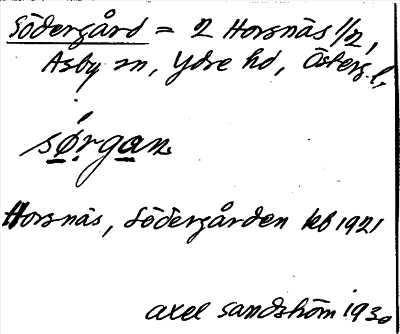 Södergård = 2 Horsnäs 1/2,
Asby sn, Ydre hd, Österg. l.
sø̱rga̱n
Horsnäs, Södergården kb 1921
Axel Sandström 1930